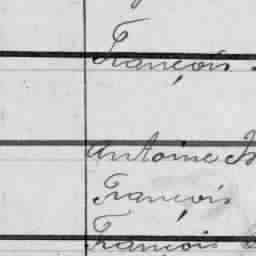 François
Antoine
François
François